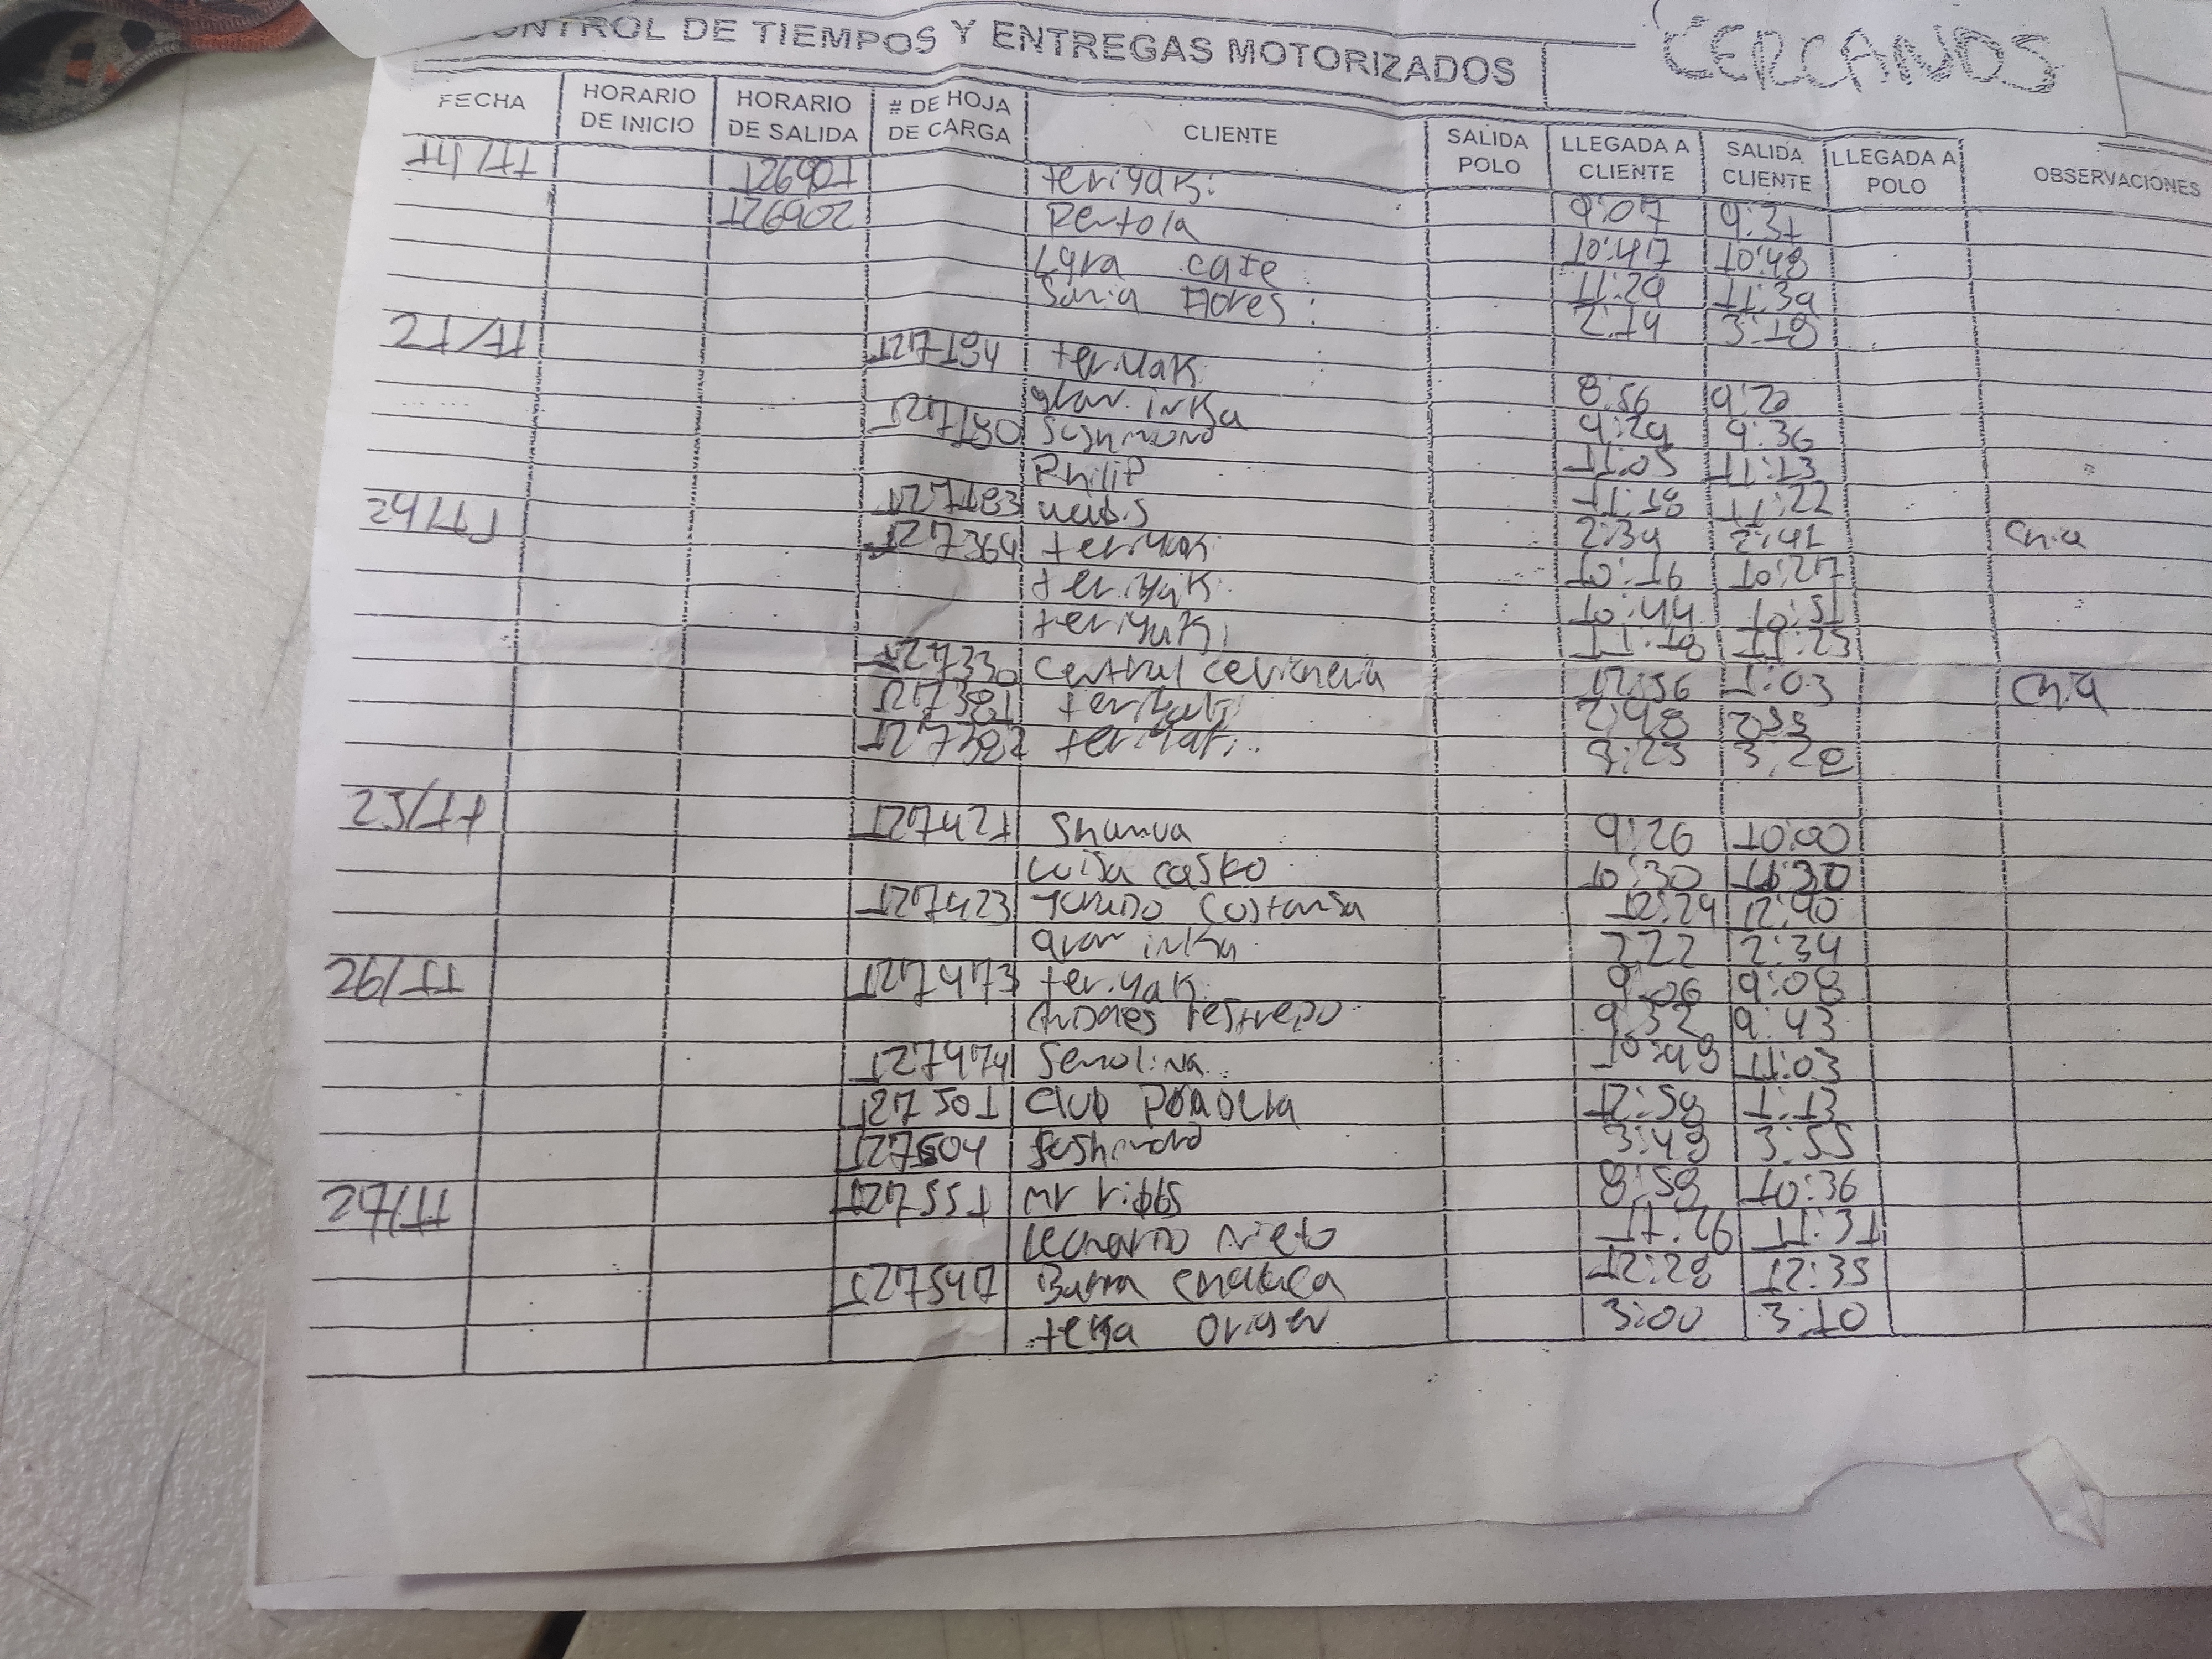 CONTROL DE TIEMPOS Y ENTREGAS MOTORIZADOS CERCANOS
FECHA HORARIO DE INICIO HORARIO DE SALIDA # DE HOJA DE CARGA CLIENTE SALIDA POLO LLEGADA A CLIENTE SALIDA CLIENTE LLEGADA A POLO OBSERVACIONES
126901 teriyaki 9:07 9:31
126902 Pertola 10:47 10:48
Lyra cafe 11:29 11:39
Sonia Flores: 2:14 3:18
127184 teriyaki 8:56 9:22
gran inka 9:29 9:36
127180 Sushimono 11:05 11:13
Philip 11:18 11:22
127183 2:39 2:41 Chia
24/11 127364 teriyaki 10:16 10:27
teriyaki 10:44 10:51
teriyaki 11:18 11:23
127330 Central cevicheria 12:56 1:03 Chia
127381 teriyaki 2:48 2:55
127382 teriyaki 3:23 3:28
25/11 127421 Shamua 9:26 10:00
Luisa casko 10:30
127423 Costansa 12:24 12:40
gran inka 2:22 2:34
26/11 127473 teriyaki 9:06 9:08
Andres restrepo 9:32 9:43
127474 Semolina 10:48 11:03
127501 Club Paradera 12:58 1:13
127504 Sushimono 3:48 3:55
27/11 127551 mr ribbs 8:58 10:36
Leonardo nieto 11:26 11:31
127547 Burra 12:28 12:35
teka origen 3:00 3:10